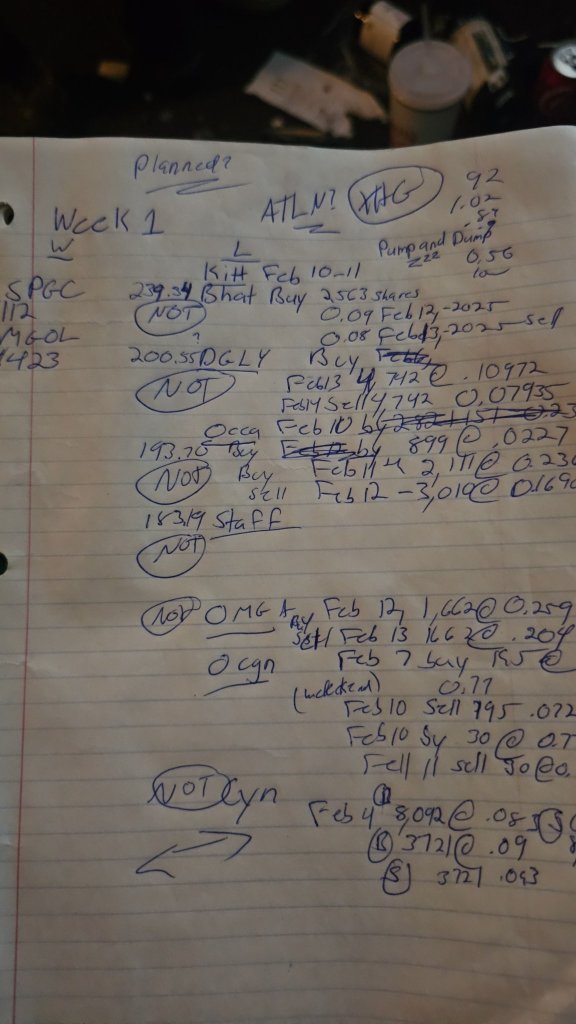 Planned?
Week 1
ATLN?
92
1.02
.87
W
L
Pump and Dump
0.56
Kitt Feb 10-11
SPGC
239.34 Bhat Buy 2563 shares
112
NOT
0.09 Feb 12, -2025
MGOL
0.08 Feb 13, -2025 Sell
1423
?
200.55 DGLY Buy
NOT
Feb 13 4,742 @ .10972
Feb 14 Sell 4742 0.07935
Occa
Feb 10 by
193.70 Buy
by 899 @ .0227
NOT
Buy
Feb 11 2,111 @ 0.230
Sell
Feb 12 -3,010 @ 0.1690
183.19 Staff
NOT
NOT OMGA Buy Feb 12, 1,662 @ 0.259
Sell Feb 13 1662 @ .204
Ocgn
Feb 7 buy 795 @
(weekend)
0.77
Feb 10 Sell 795 .072
Feb 10 by 30 @ 0.7
11 sell 30 @ 0.
NOT Cyn
Feb 4 B 8,092 @ .085 S
B 3721 @ .09
S 3721 .093